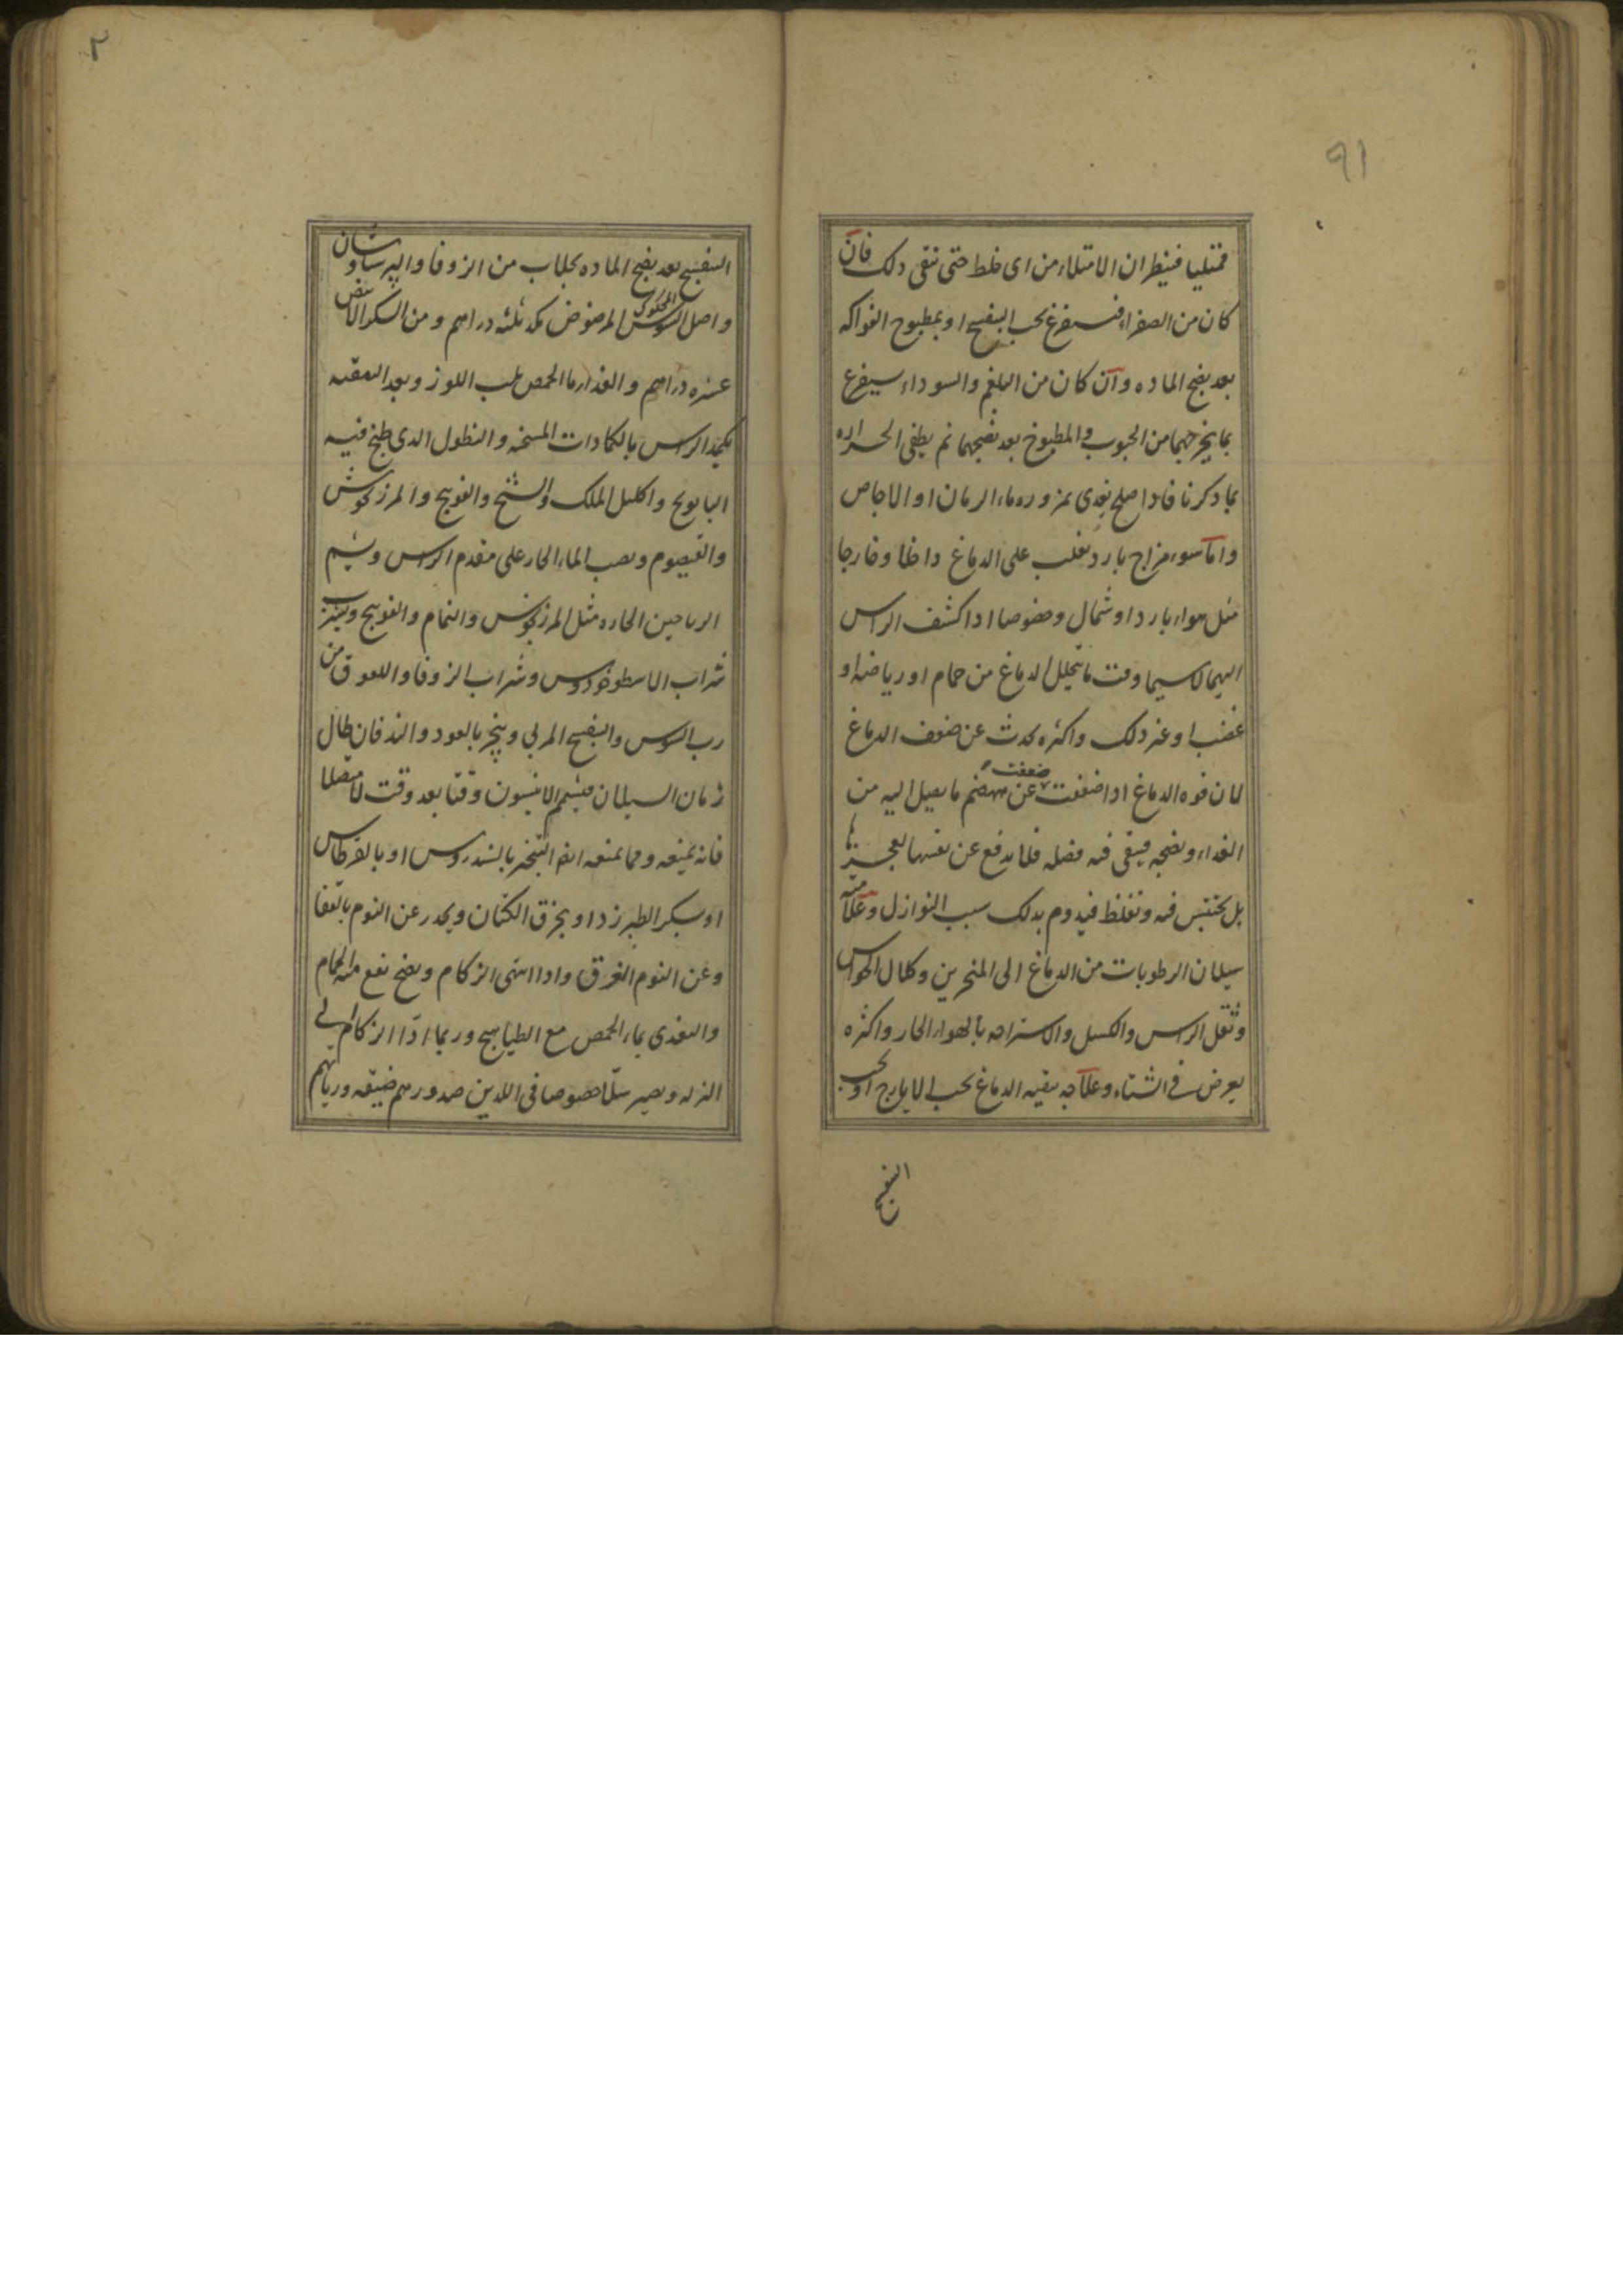 ٩١
ممتليا فينظر ان الامتلاء من اى خلط حتى ينقى ذلك فان
كان من الصفراء فيستفرغ بحب البنفسج او بمطبوخ الفواكه
بعد نضج الماده وان كان من البلغم والسوداء يستفرغ
بما يخرجهما من الحبوب والمطبوخ بعد نضجهما ثم يطفى الحراره
بما ذكرنا فاذا صلح يغدى بمزوره ماء الرمان او الاجاص
واما سوء مزاج بارد تغلب على الدماغ داخلا وخارجا
مثل هواء بارد او شمال وخصوصا اذا كشف الراس
اليهما لاسيما وقت ما يتحلل الدماغ من حمام او رياضه او
غضب او غير ذلك واكثره يحدث عن ضعف الدماغ
لان قوه الدماغ اذا ضعفت عن هضم ما يصل اليه من
ضعفت
الغداء ونضجه فيبقى فيه فضله فلا يدفع عن نفسها لعجزها
بل يحتبس فيه وتغلظ فيدوم بذلك سبب النوازل وعلامته
سيلان الرطوبات من الدماغ الى المنخرين وكلال الحواس
وثقل الراس والكسل والاستراحه بالهواء الحار واكثره
يعرض فى الشتاء وعلاجه تنقيه الدماغ بحب الايارج او بحب
البنفسج
٢
البنفسج بعد نضج الماده بجلاب من الزوفا والبرسياوشان
واصل السوس المرضوض مكد ثلثه دراهم ومن السكر الابيض
المحكوك
عشره دراهم والغداء ماء الحمص بلب اللوز وبعد التنقيه
يكمد الراس بالكمادات المسخنه والنطول الذى طبخ فيه
البابونج واكليل الملك والشيح والفوينج والمرزنجوش
والقيصوم ويصب الماء الحار على مقدم الراس ويشم
الرياحين الحاره مثل المرزنجوش والنمام والفوينج ويشرب
شراب الاسطوخودوس وشراب الزوفا واللعوق من
رب السوس والبنفسج المربى ويبخر بالعود والند فان طال
زمان السيلان فيشم الانيسون وقتا بعد وقت لا متصلا
فانه يمنعه ومما يمنعه ايضا التبخر بالسندروس او بالقرطاس
او بسكر الطبرزد او بخرق الكتان ويحذر عن النوم بالقفا
وعن النوم الغرق واذا انتهى الزكام ونضج نفع منه الحمام
والتغدى بماء الحمص مع الطياهيج وربما ادّا الزكام الى
النزله ويصير سلّا خصوصا فى اللذين صدورهم ضيقه ورياتهم